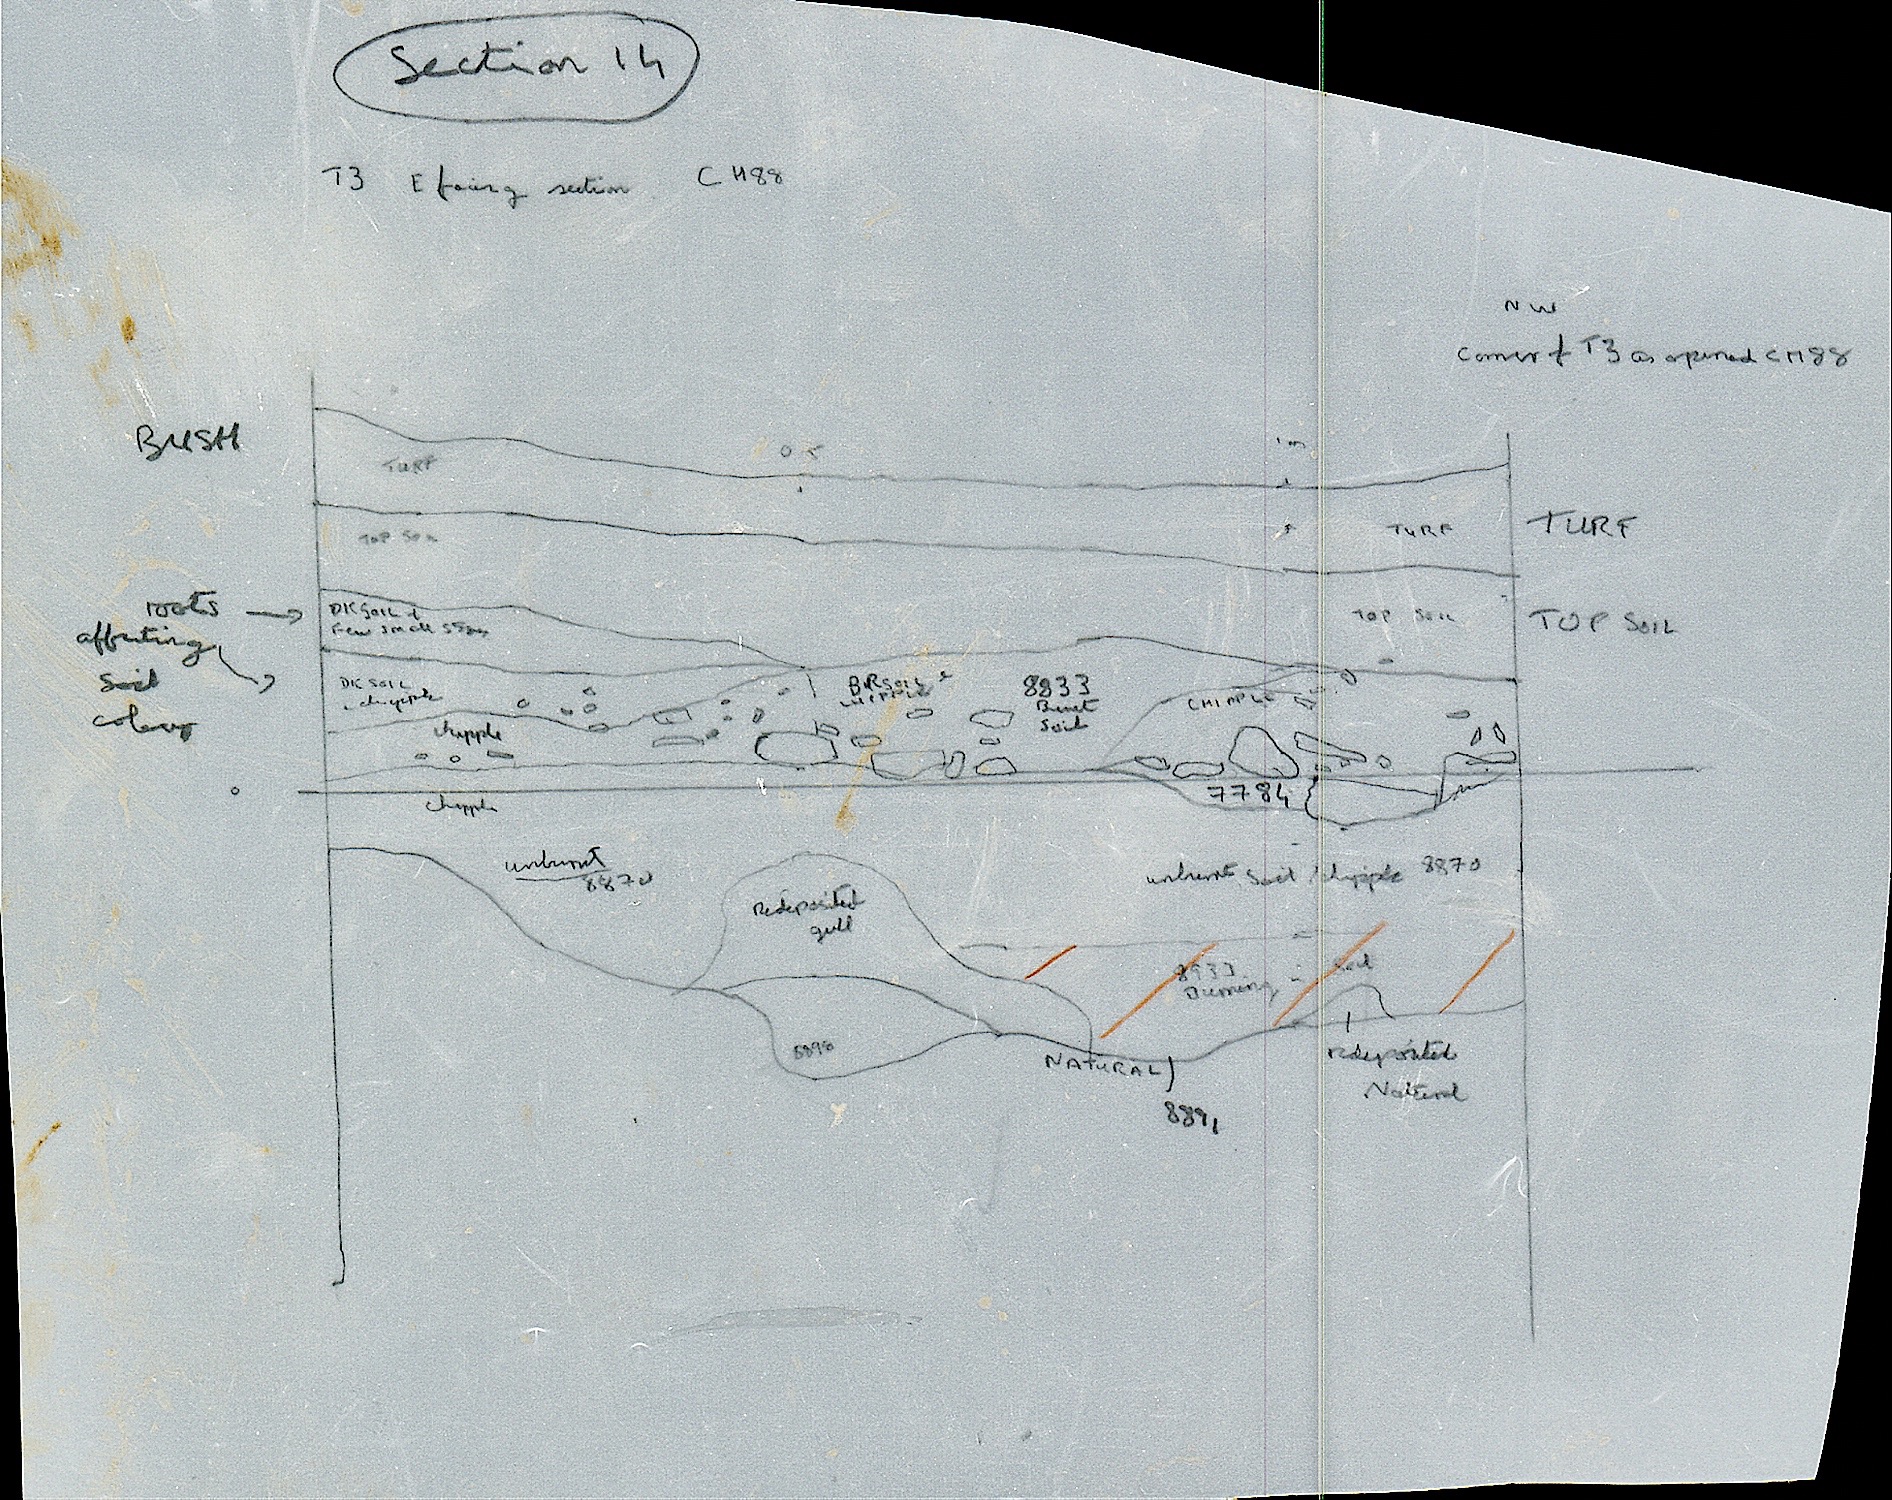 Section 14
T3 E facing section CH88
NW
corner of T3 as opened CH88
BUSH
TURF
0.5
1m
TURF
TURF
TOP SOIL
TOP SOIL
TOP SOIL
roots
affecting
soil
colour
DK SOIL &
Few small stones
DK SOIL
chypple
chypple
BR SOIL
8833
Burnt
Soil
CHIPPLE
0
chypple
7784
unburnt
8870
unburnt Soil / chypple 8870
Redeposited
8933
Soil
8898
NATURAL
8891
redeposited
Natural